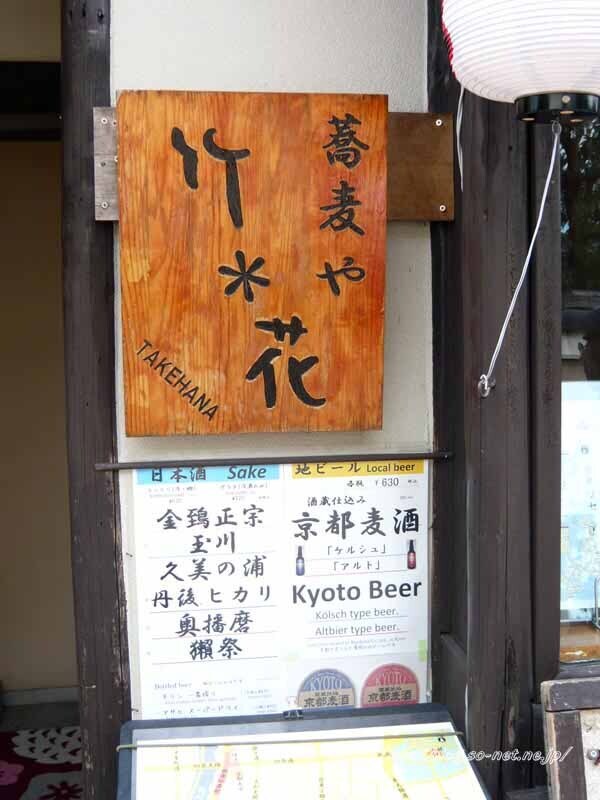 蕎麦や
竹米花
TAKEHANA
日本酒 Sake
金鵄正宗
玉川
久美の浦
丹後ヒカリ
奥播磨
獺祭
Bottled beer
地ビール Local beer
各種 ¥630
酒蔵仕込み
京都麦酒
「ケルシュ」
「アルト」
Kyoto Beer
Kölsch type beer.
Altbier type beer.
KYOTO
京都麦酒
KYOTO
京都麦酒
so-net.ne.jp/